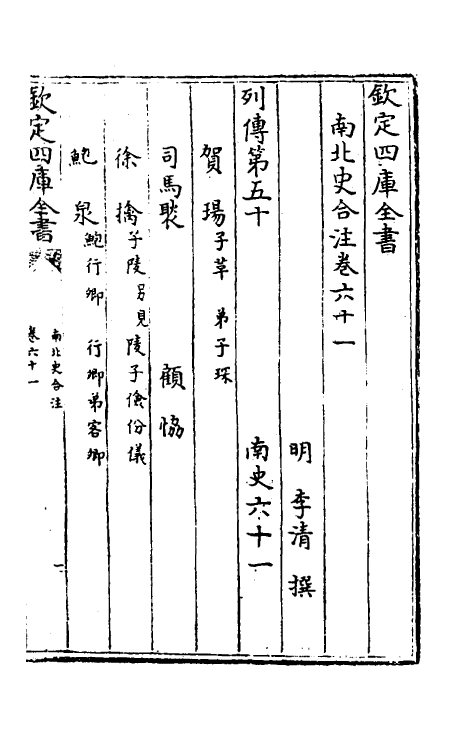 欽定四庫全書
南北史合注卷六十一
明 李清 撰
列傳第五十 南史六十一
賀瑒 子革 弟子琛
司馬褧 顧協
徐摛 子陵另見 陵子儉份儀
鮑泉 鮑行卿 行卿弟客卿
欽定四庫全書
南北史合注
卷六十一
一